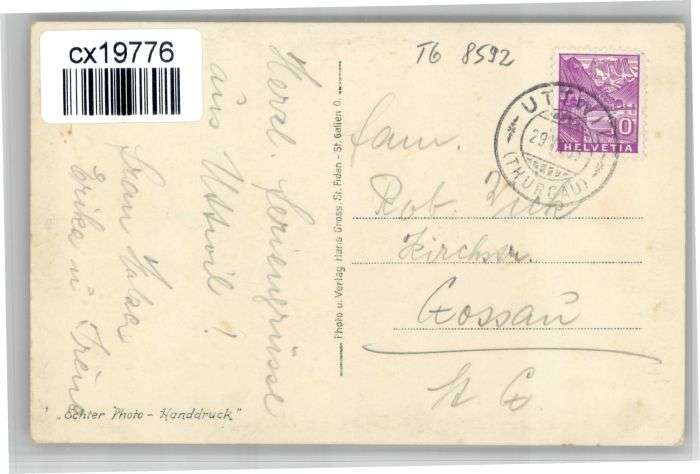 cx19776
TG 8592
HELVETIA
10
UTTWIL
29
(THURGAU)
Herzl. Feriengrüsse
aus Uttwil!
Frau
Erika u. Irene
Photo u. Verlag Hans Gross, St. Fiden - St. Gallen O.
Fam.
Rob.
Kirchstr.
Gossau
St G
„Echter Photo - Handdruck"